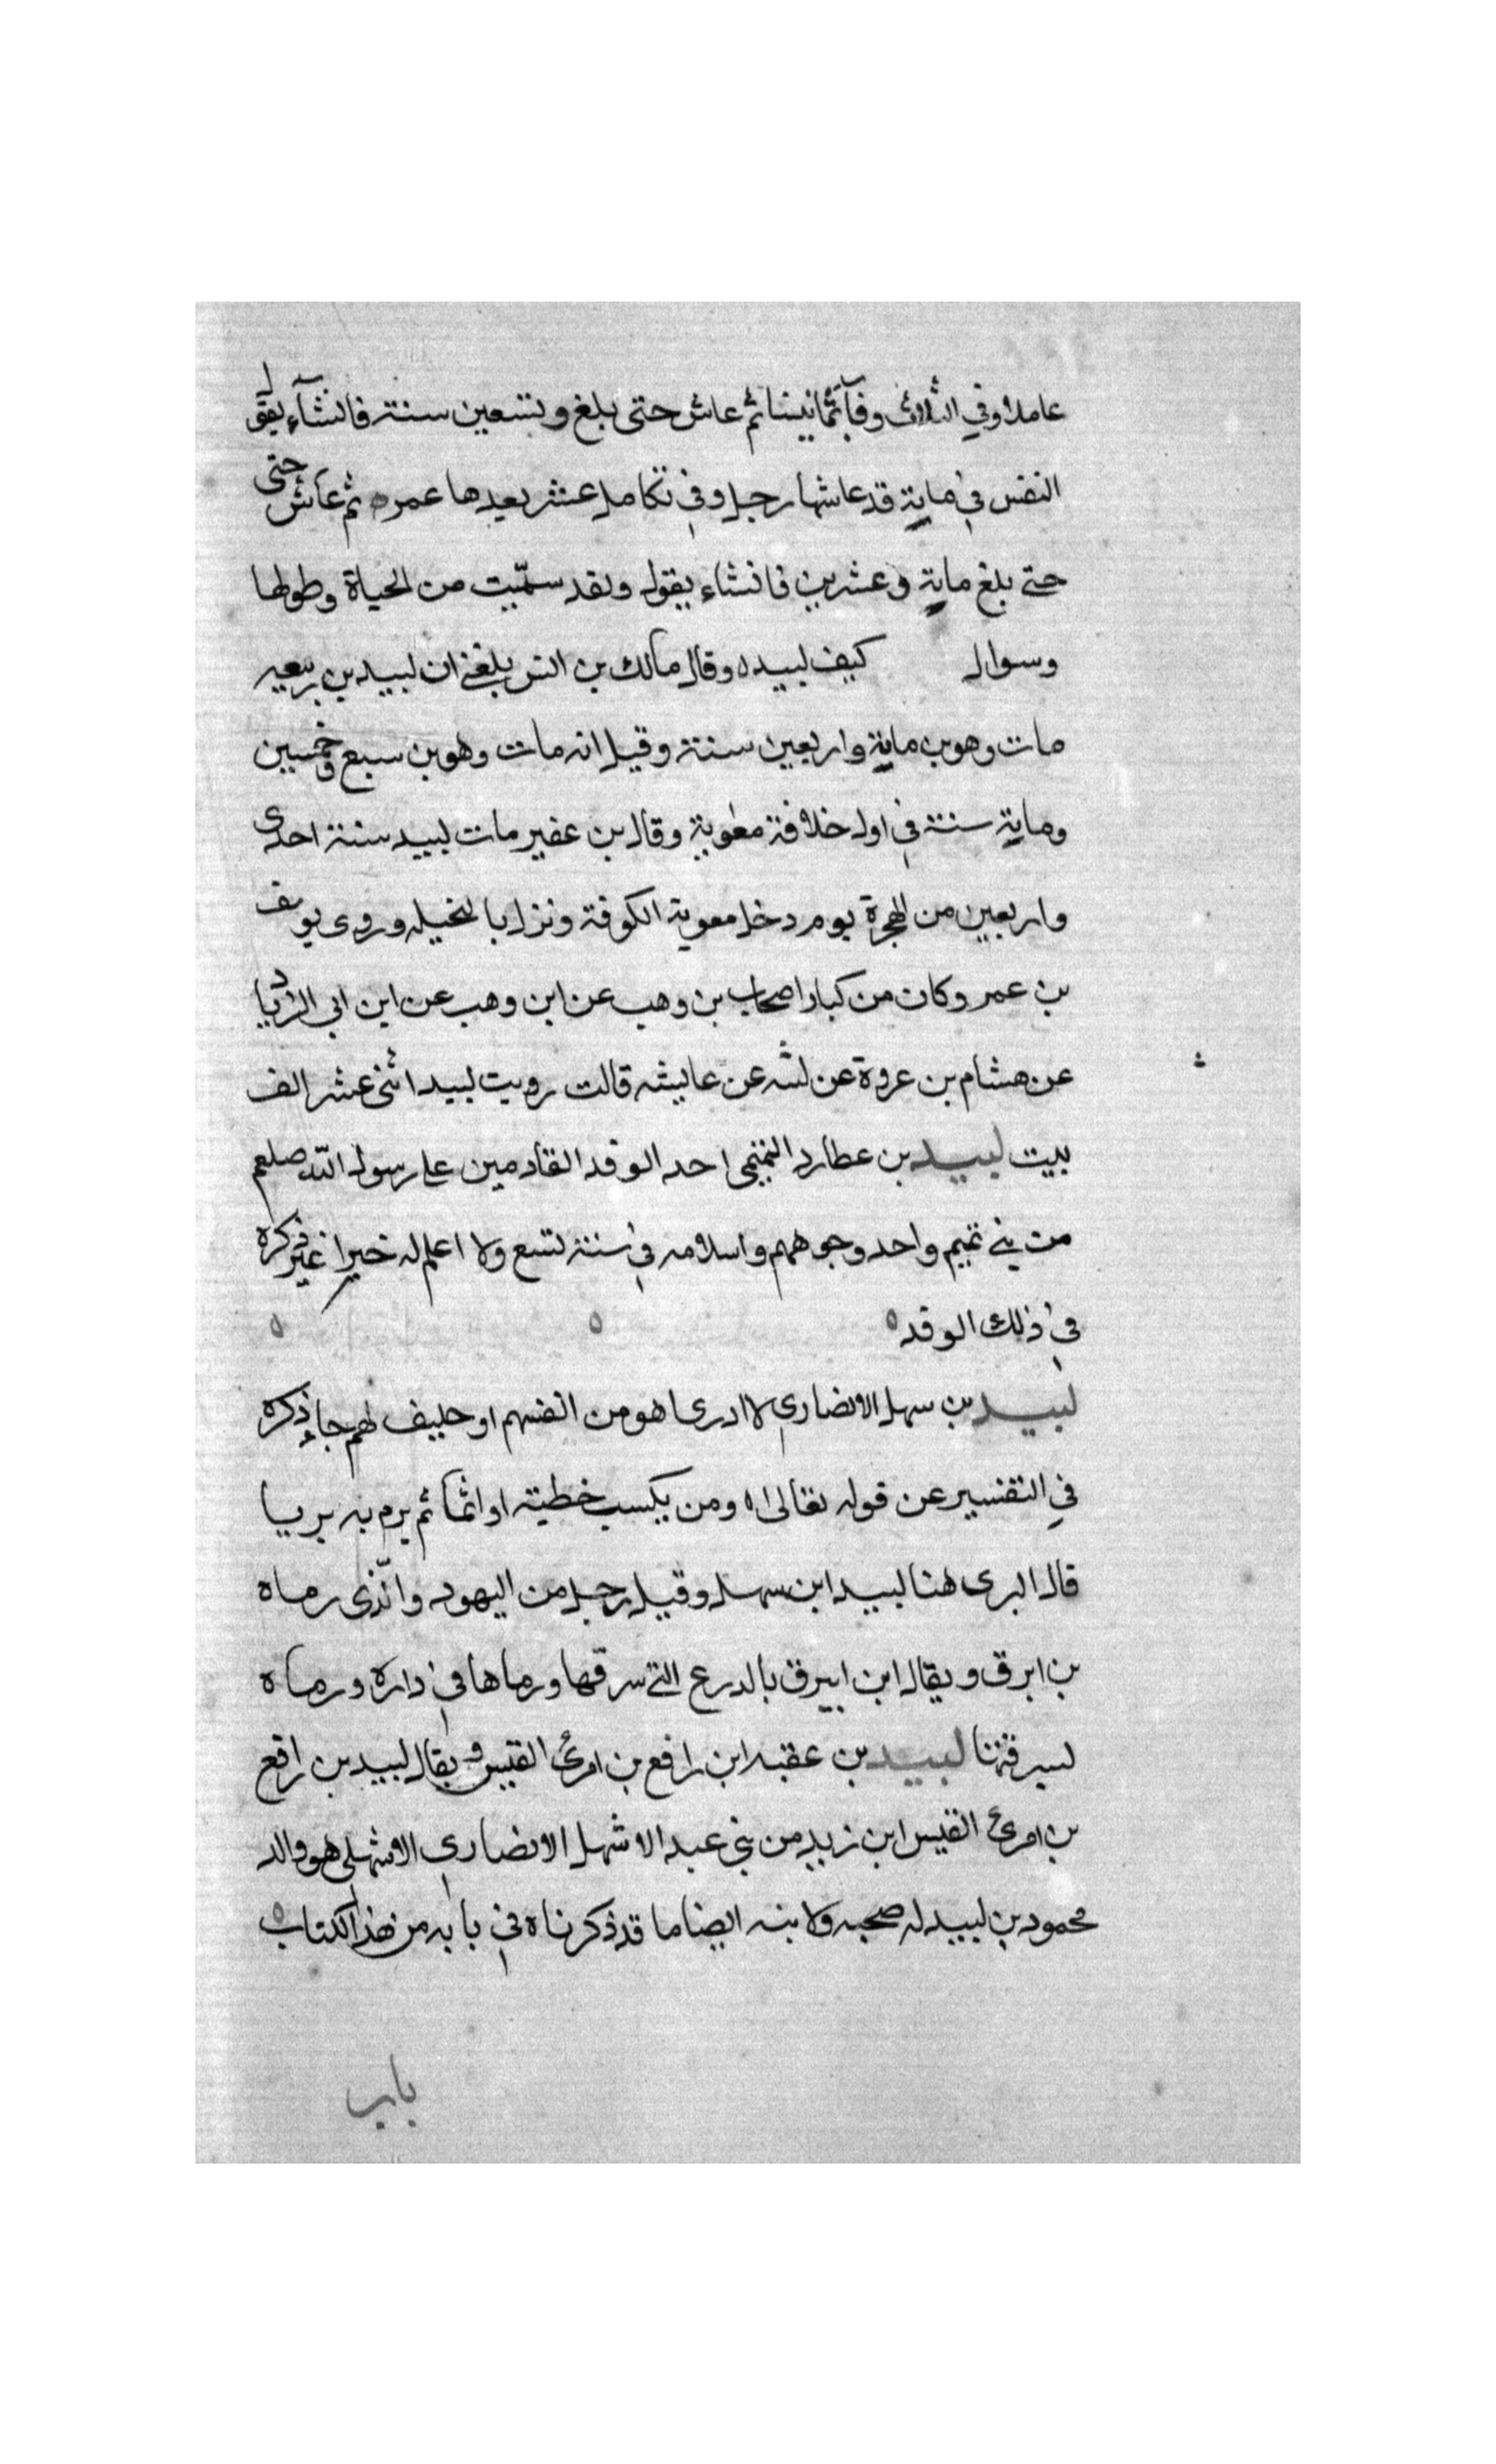 عاملا وفي الثلاث وفآء ثمانينا ثم عاش حتى بلغ وتسعين سنة فانشآء يقول
النفس في ماية قد عاشها رجل وفي تكامل عشر بعدها عمره ثم عاش حتى
حتى بلغ ماية وعشرين فانشاء يقول ولقد سمّيت من الحياة وطولها
وسوال كيف لبيد ه وقال مالك بن انس بلغني ان لبيد بن ربيعه
مات وهو بن ماية واربعين سنة وقيل انه مات وهو بن سبع وخمسين
وماية سنة في اول خلافة معٰوية وقال بن عفير مات لبيد سنة احدى
واربعين من الهجرة يوم دخل معوية الكوفة ونزل بالنخيله وروى يوسف
بن عمر وكان من كبار اصحاب بن وهب عن ابن وهب عن ابن ابي الزناد
عن هشام بن عروة عن عن عايشه قالت رويت لبيد اثنى عشر الف
بيت لبيد بن عطارد التميمي احد الوفد القادمين على رسول الله صلعم
من بني تميم واحد وجوههم واسلامه في سنة تسع ولا اعلم له خبرا غير ذكره
في ذلك الوفد ه ه ه
لبيد بن سهل الانصاري لا ادرى اهو من انفسهم او حليف لهم جاء ذكره
في التفسير عن قوله تعالى ومن يكسب خطية او اثما ثم يرم به بريا
قال البرى هنا لبيد ابن سهل وقيل رجل من اليهود والّذى رماه
بن ابرق ويقال ابن ابيرق بالدرع التي سرقها ورماها في داره ورماه
لسرقتها لبيد بن عقبه ابن رافع بن امرئ القيس ويقال لبيد بن رافع
بن امرئ القيس ابن زيد من بني عبد الاشهل الانصاري الاشهلى هو والد
محمود بن لبيد له صحبه ولابنه ايضا ما قد ذكرناه في بابه من هذا الكتاب ه
باب